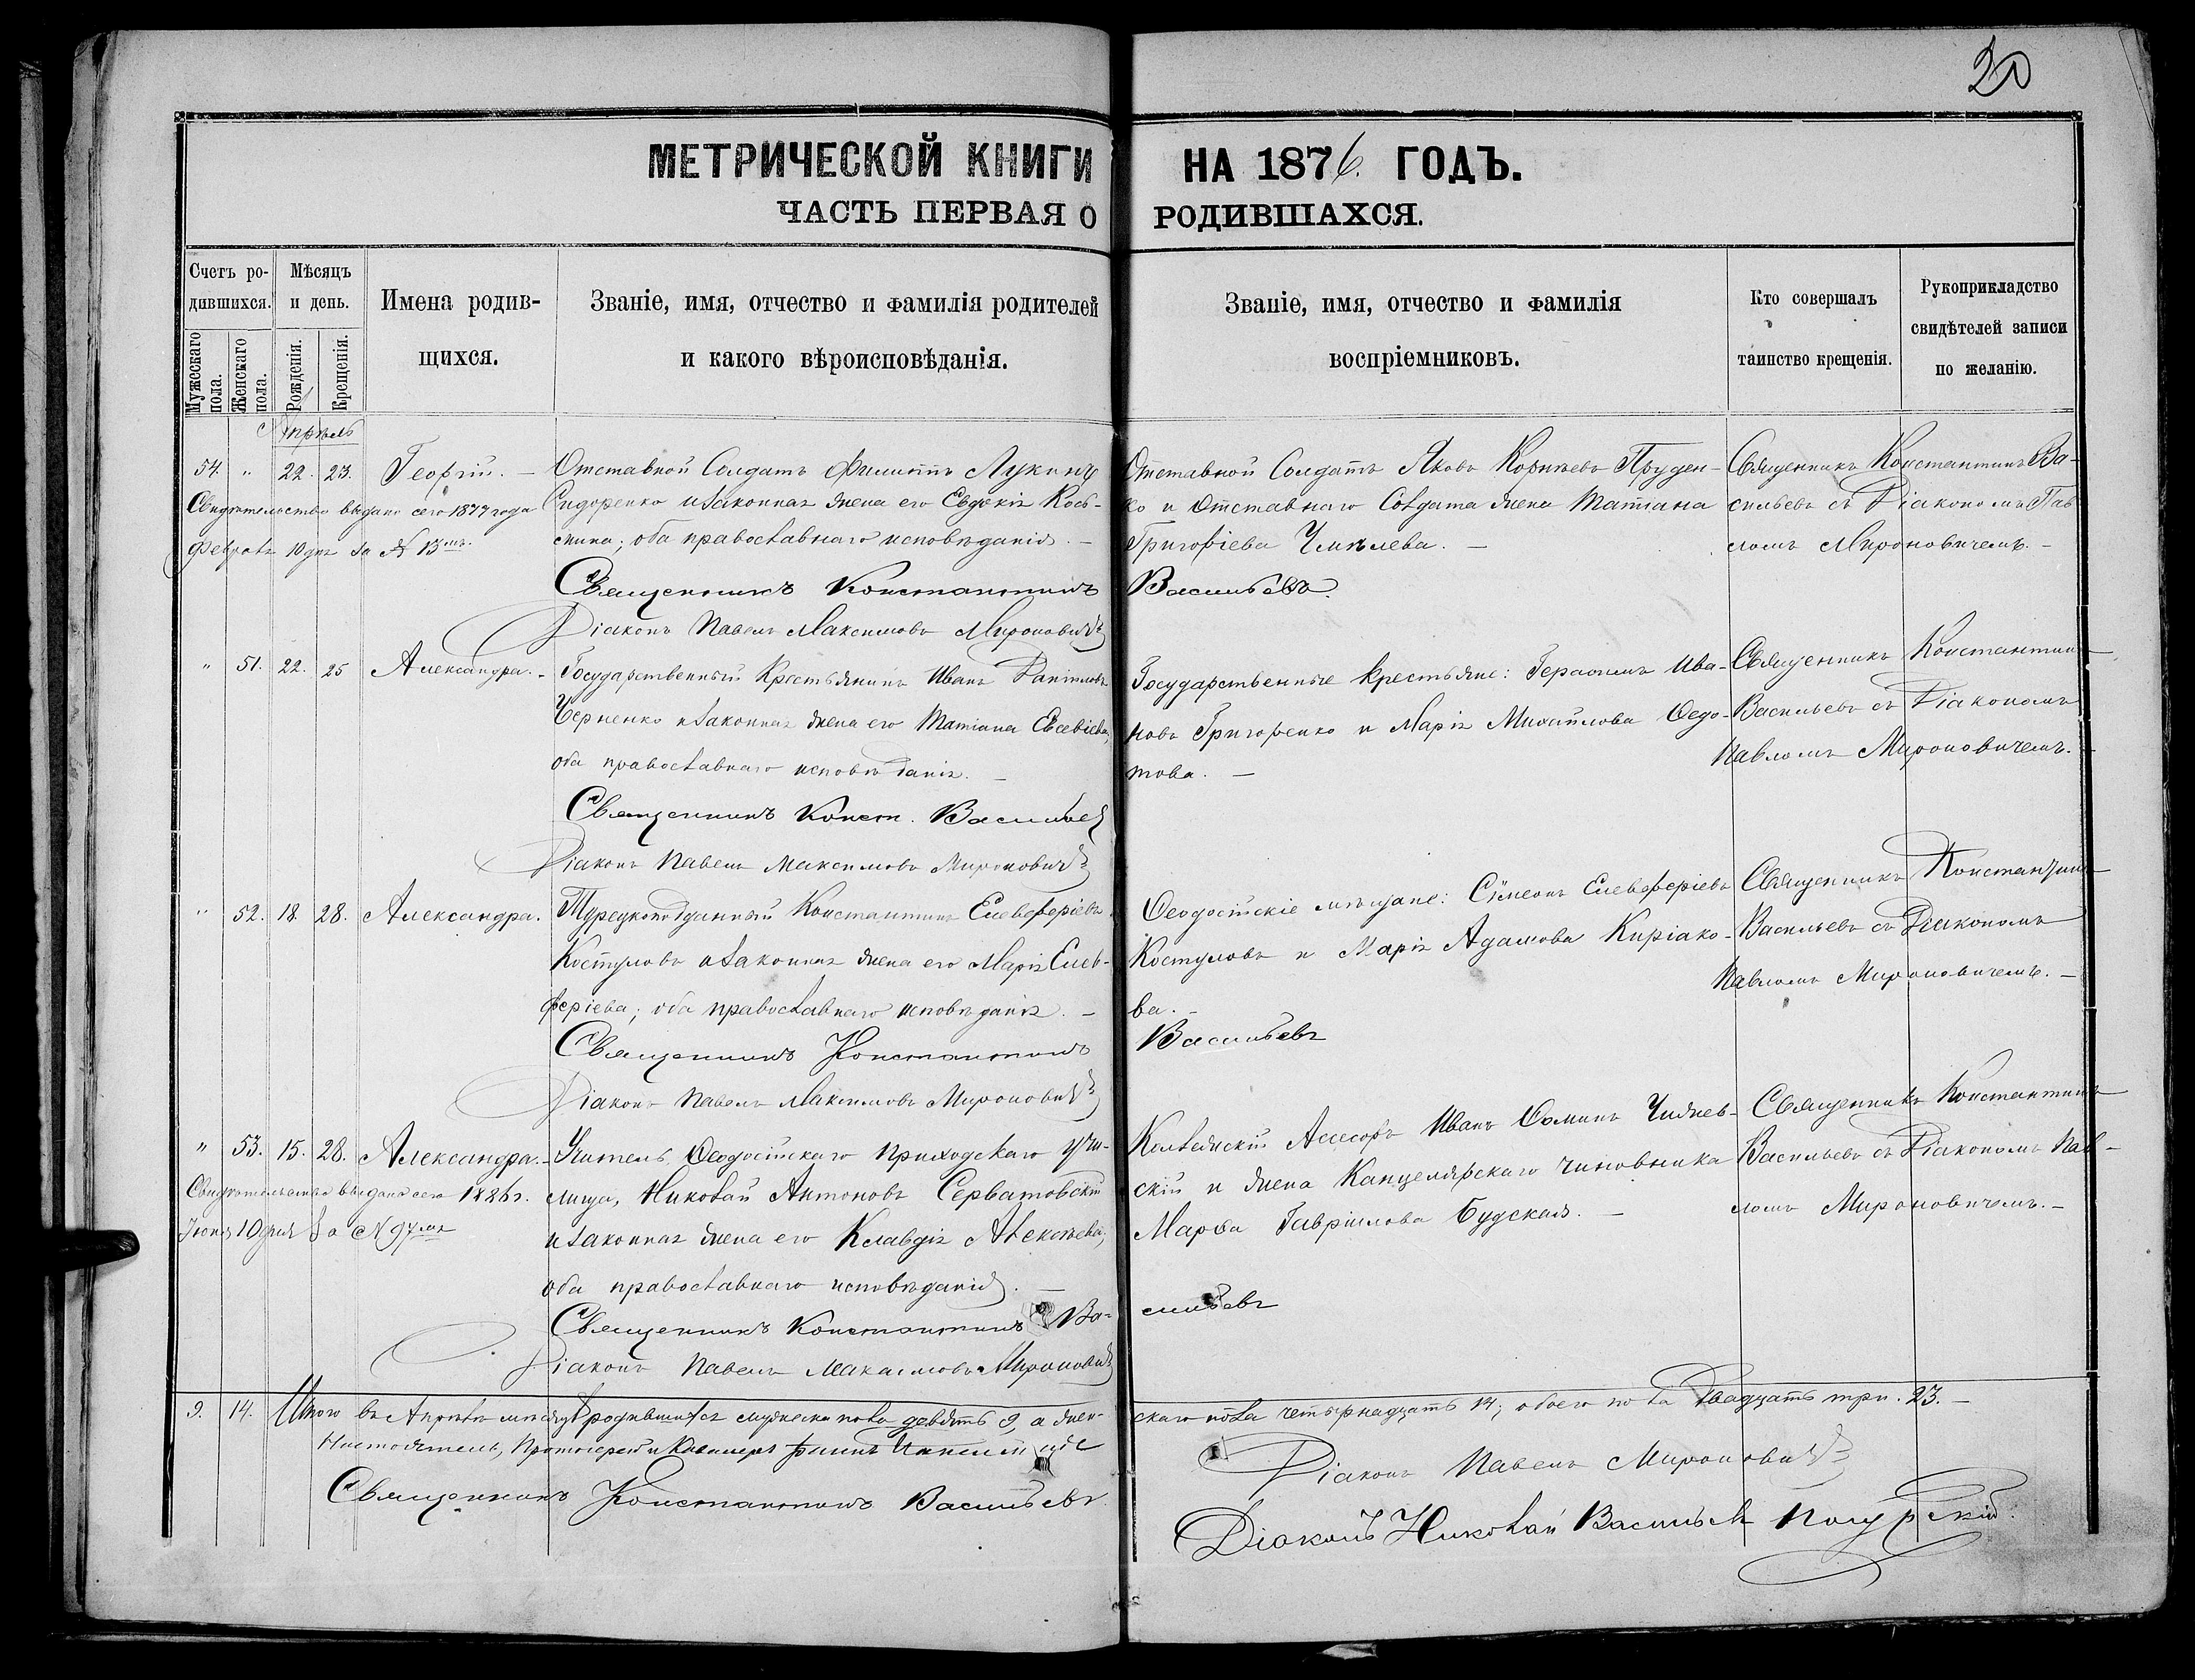 20
МЕТРИЧЕСКОЙ КНИГИ НА 1876. ГОДЪ.
ЧАСТЬ ПЕРВАЯ О РОДИВШАХСЯ.
Счетъ ро-
дившихся.
Мужескаго пола.
Женскаго пола.
Мѣсяцъ
и день.
Рожденія.
Крещенія.
Имена родив-
щихся.
Званіе, имя, отчество и фамилія родителей
и какого вѣроисповѣданія.
Званіе, имя, отчество и фамилія
воспріемниковъ.
Кто совершалъ
таинство крещенія.
Рукоприкладство
свидѣтелей записи
по желанію.
Апрѣль
54. " 22. 23. Георгій. –
Свидѣтельство выдано сего 1877 года
Февраля 10 дня за N 13мъ.
Отставной Солдатъ Филиппъ Лукинъ
Сидоренко и законная жена его Евдокія Кось-
мина; оба православнаго исповѣданія. –
Священникъ Константинъ Васильевъ.
Діаконъ Павелъ Максимовъ Мироновичъ
Отставной Солдатъ Яковъ Корнѣевъ Пруден-
ко и отставнаго Солдата жена Татіана
Григоріева Чмѣлева. –
Священникъ Константинъ Ва-
сильевъ съ Діакономъ Пав
ломъ Мироновичемъ. –
" 51. 22. 25 Александра. –
Государственный Крестьянинъ Иванъ Даніиловъ
Черненко и законная жена его Татіана Евсевіева,
оба православнаго исповѣданія. –
Священникъ Конст. Васильев
Діаконъ Павелъ Максимовъ Мироновичъ
Государственные крестьяне: Герасимъ Ива-
новъ Григоренко и Марія Михайлова Ѳедо-
това. –
Священникъ Константинъ
Васильевъ съ Діакономъ
Павломъ Мироновичемъ. –
" 52. 18. 28. Александра.
Турецкоподданный Константинъ Елевферіевъ
Костуловъ и законная жена его Марія Елев-
феріева; оба православнаго исповѣданія. –
Священникъ Константинъ Васильевъ
Діаконъ Павелъ Максимовъ Мироновичъ
Ѳеодосійскіе мѣщане: Сѵмеонъ Елевферіевъ
Костуловъ и Марія Адамова Киріако-
ва. –
Священникъ Константинъ
Васильевъ съ Діакономъ
Павломъ Мироновичемъ. –
" 53. 15. 28. Александра. –
Свидѣтельство выдано сего 1886 г.
Іюня 10 дня за N 97мъ
Учитель Ѳеодосійскаго приходскаго учи-
лища, Николай Антоновъ Серватовскій
и законная жена его Клавдія Алексѣева;
оба православнаго исповѣданія. –
Священникъ Константинъ Ва-сильевъ
Діаконъ Павелъ Максимовъ Мироновичъ
Колежскій Асесоръ Иванъ Ѳоминъ
скій и жена Канцелярскаго чиновника
Марѳа Гавріилова Будская. –
Священникъ Константинъ
Васильевъ съ Діакономъ Пав-
ломъ Мироновичемъ. –
9. 14. Итого въ Апрѣлѣ мѣсяцѣ родившихся мужеска пола девять 9, а жен-
скаго пола четырнадцать 14; обоего пола двадцать три. 23. –
Настоятель, Протоіерей и Кавалеръ
Священникъ Константинъ Васильевъ
Діаконъ Павелъ Мироновичъ
Діаконъ Николай Васильев